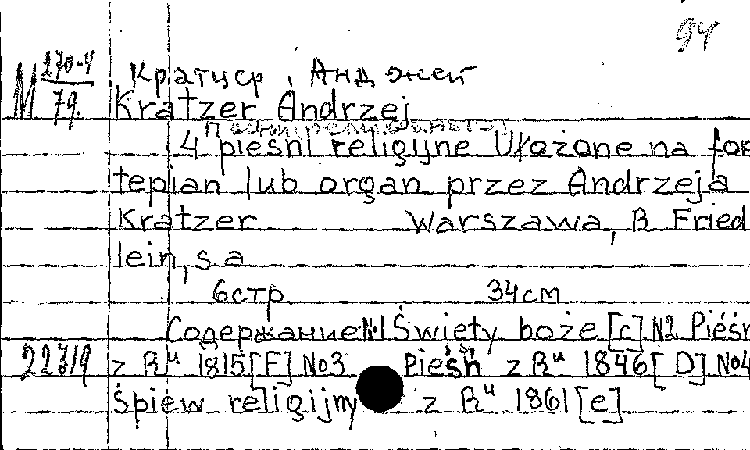 94
М 270-4/79.
Кратцер, Анджей
Kratzer Andrzej
4 pieśni religijne Ułożone na for
tepian lub organ przez Andrzeja
Kratzer Warszawa, R Fried
lein, s a
6стр 34см
Содержание №1 Święty boże [c] №2 Pieśń
22719 z Rᵘ 1815 [F] №3 Pieśń z Rᵘ 1846 [D] №4
Śpiew religijny z Rᵘ 1861 [e]